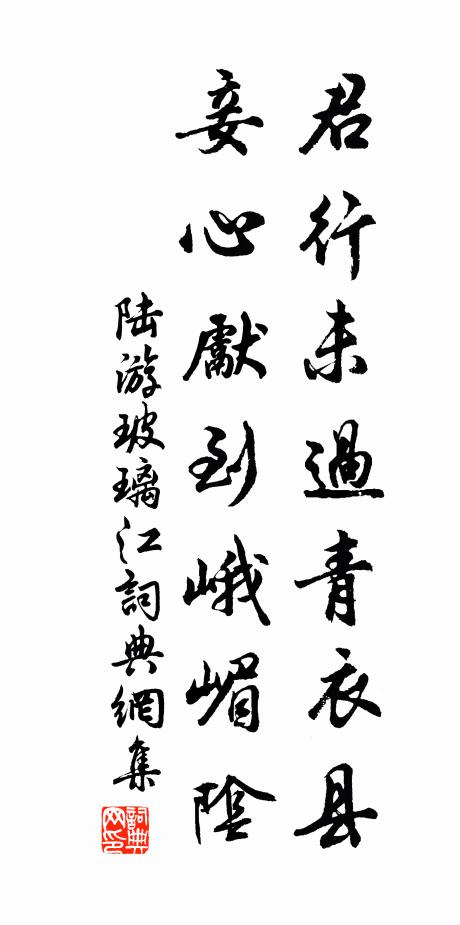 君行未過青衣县
妾心獻到峨嵋陰
陆游玻璃江詞典網集
詞典网印